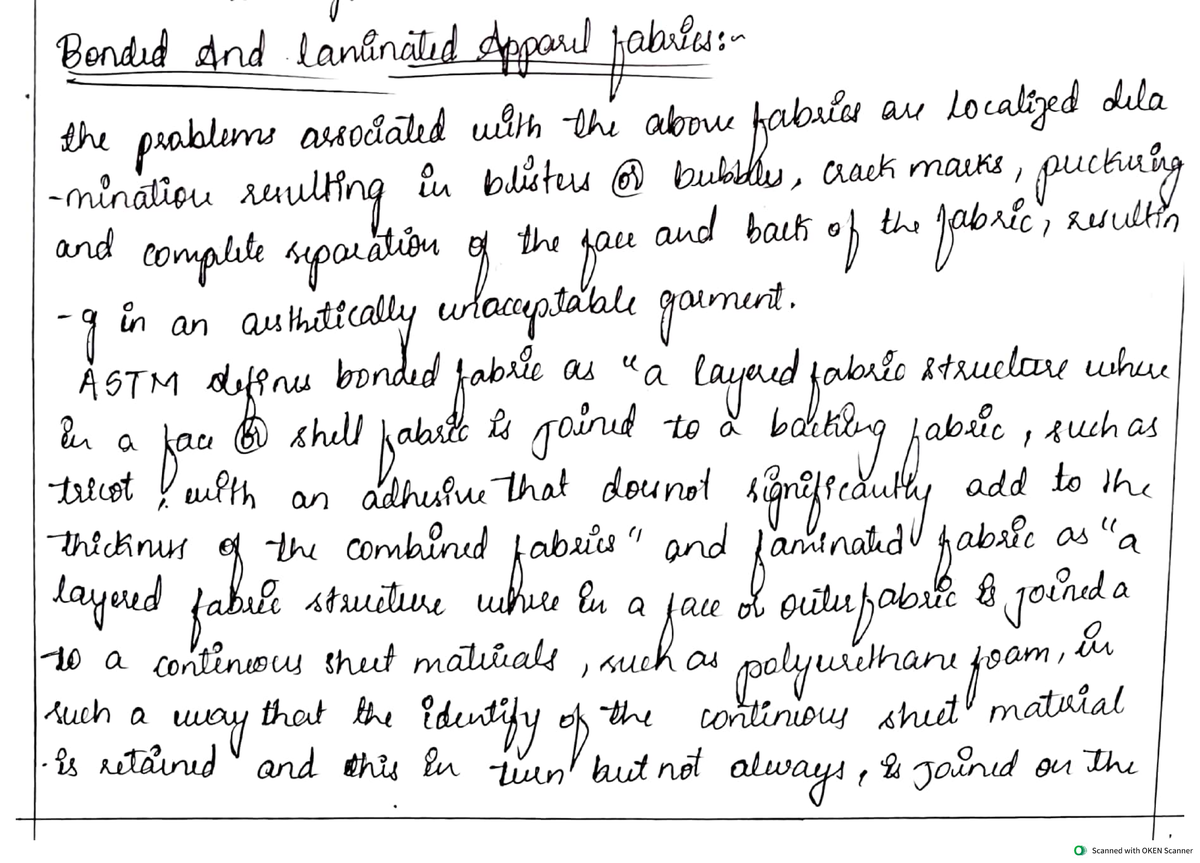 Bonded And laminated Apparel fabrics:~
the problems associated with the above fabrics are Localized dela
-mination resulting in blisters or bubbles, crack marks, puckering
and complete separation of the face and back of the fabric, resultin
-g in an austhitically unacceptable garment.
ASTM defines bonded fabric as "a layered fabric structure where
in a face or shell fabric is joined to a backing fabric, such as
tricot, with an adhesive that does not significantly add to the
thickness of the combined fabrics" and laminated fabric as "a
layered fabric structure where in a face or outer fabric is joined a
to a continuous sheet materials, such as polyurethane foam, in
such a way that the identify of the continious sheet material
is retained and this in turn but not always, is joined on the
Scanned with OKEN Scanner